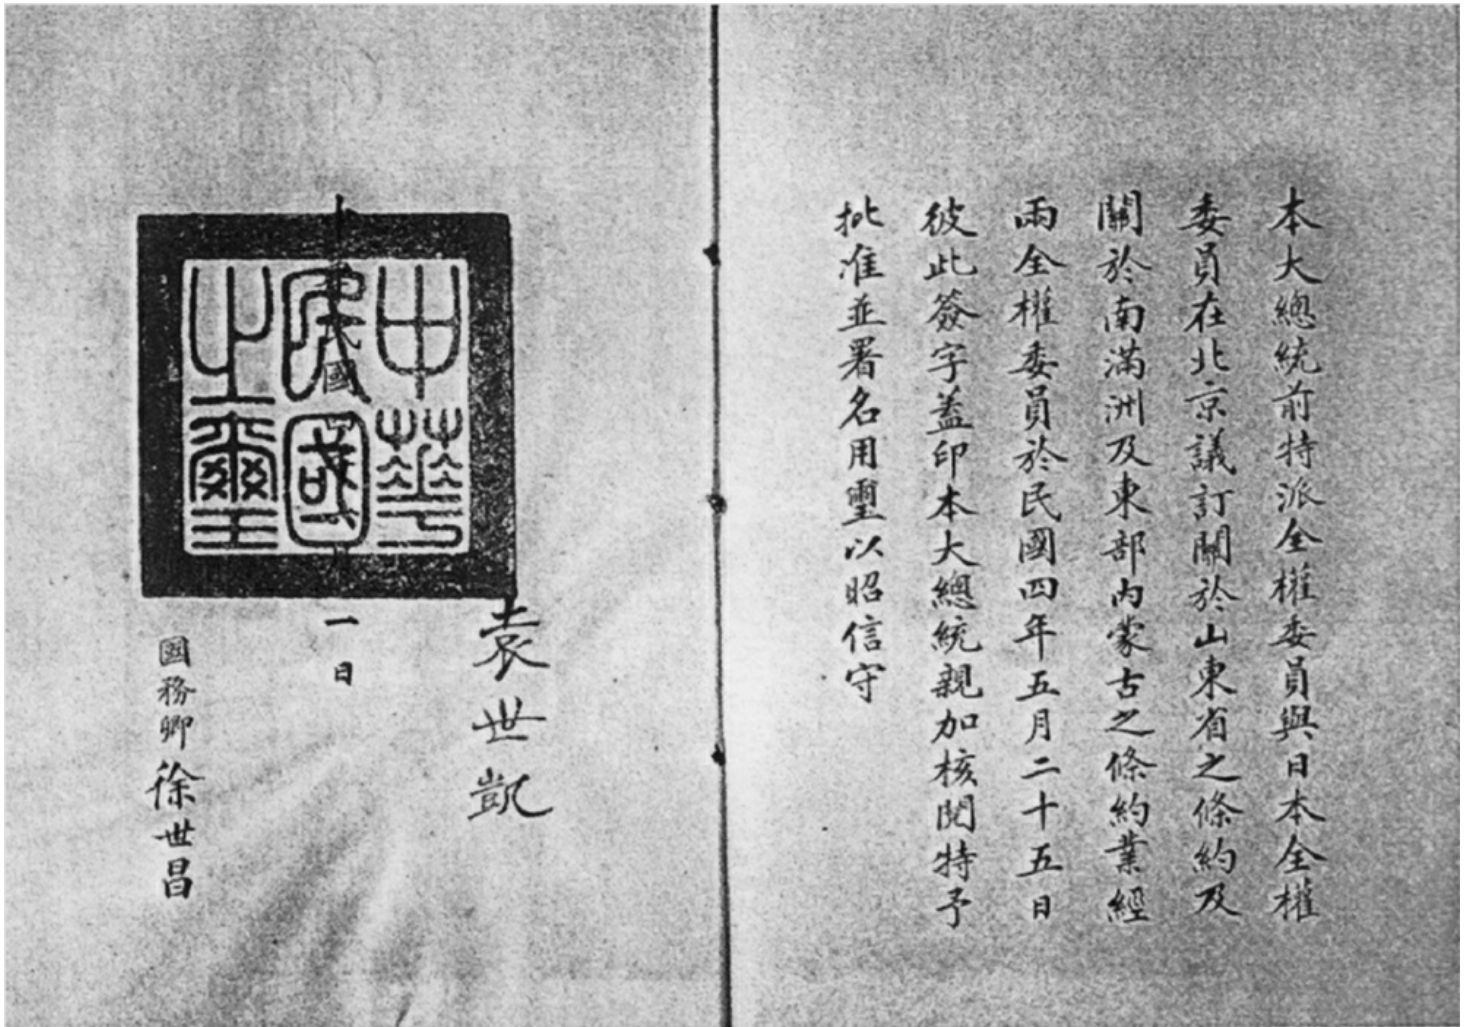 本大總統前特派全權委員與日本全權
委員在北京議訂關於山東省之條約及
關於南滿洲及東部內蒙古之條約業經
兩全權委員於民國四年五月二十五日
彼此簽字蓋印本大總統親加核閱特予
批准並署名用璽以昭信守
袁世凱
中華
民國
之璽
民國 一日
國務卿徐世昌